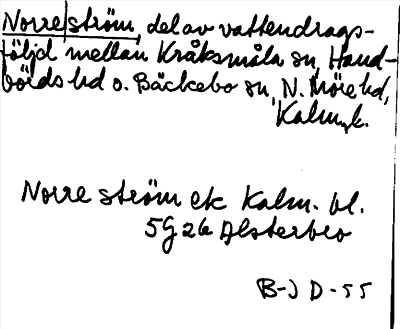 Norreström, del av vattendrags-
följd mellan Kråksmåla sn, Hand-
börds hd o. Bäckebo sn, N. Möre hd,
Kalm. l.
Norre ström ek Kalm. bl.
5G 2b Alsterbro
B-J D-55